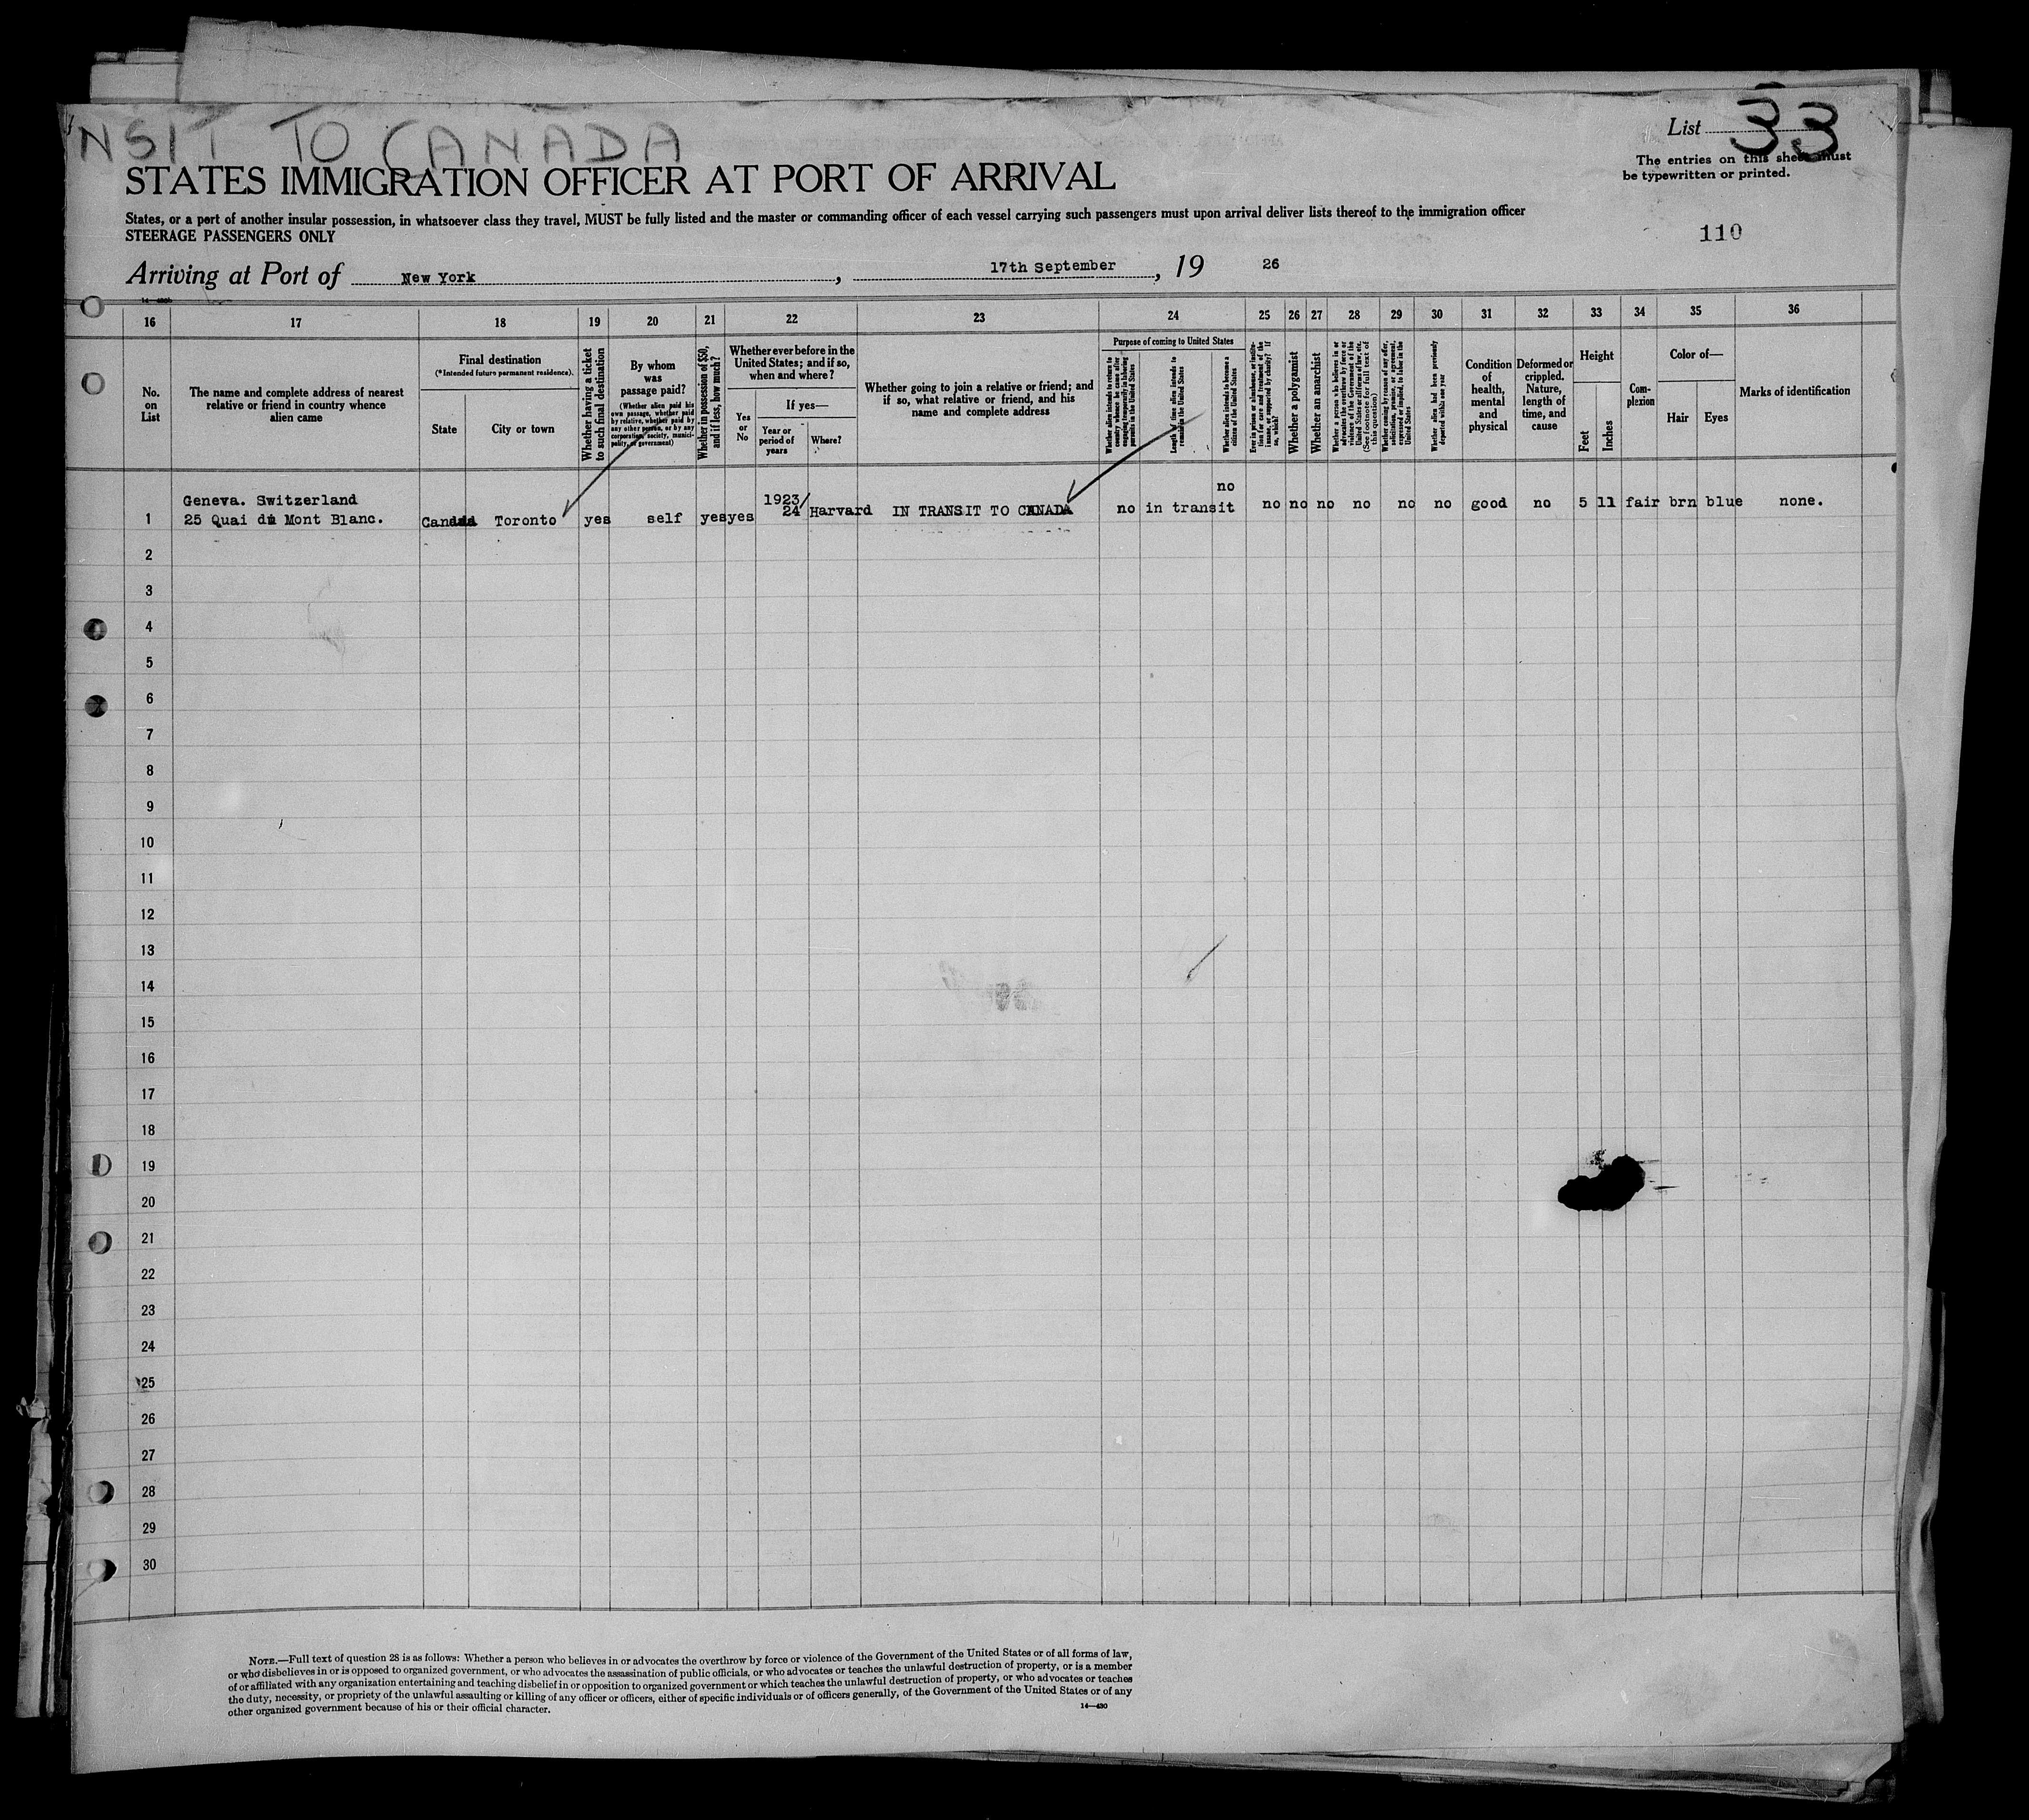 NSIT TO CANADA
List 33
The entries on this sheet must
be typewritten or printed.
STATES IMMIGRATION OFFICER AT PORT OF ARRIVAL
States, or a port of another insular possession, in whatsoever class they travel, MUST be fully listed and the master or commanding officer of each vessel carrying such passengers must upon arrival deliver lists thereof to the immigration officer
STEERAGE PASSENGERS ONLY
110
Arriving at Port of New York, 17th September, 19 26
16 17 18 19 20 21 22 23 24 25 26 27 28 29 30 31 32 33 34 35 36
No.
on
List
The name and complete address of nearest
relative or friend in country whence
alien came
Final destination
(*Intended future permanent residence).
State
City or town
Whether having a ticket
to such final destination
By whom
was
passage paid?
(Whether alien paid his
own passage, whether paid
by relative, whether paid by
any other person, or by any
corporation, society, munici-
pality, or government)
Whether in possession of $50,
and if less, how much?
Whether ever before in the
United States; and if so,
when and where?
Yes
or
No
If yes—
Year or
period of
years
Where?
Whether going to join a relative or friend; and
if so, what relative or friend, and his
name and complete address
Purpose of coming to United States
Whether alien intends to return to
country whence he came after
engaging temporarily in laboring
pursuits in the United States
Length of time alien intends to
remain in the United States
Whether alien intends to become a
citizen of the United States
Ever in prison or almshouse, or institu-
tion for care and treatment of the
insane, or supported by charity? If
so, which?
Whether a polygamist
Whether an anarchist
Whether a person who believes in or
advocates the overthrow by force or
violence of the Government of the
United States or all forms of law, etc.
(See footnote for full text of
this question)
Whether coming by reason of any offer,
solicitation, promise, or agreement,
expressed or implied, to labor in the
United States
Whether alien had been previously
deported within one year
Condition
of
health,
mental
and
physical
Deformed or
crippled.
Nature,
length of
time, and
cause
Height
Feet
Inches
Com-
plexion
Color of—
Hair
Eyes
Marks of identification
Geneva. Switzerland
1 25 Quai du Mont Blanc. Canada Toronto yes self yes yes 1923/24 Harvard IN TRANSIT TO CANADA no in transit no no no no no no no good no 5 11 fair brn blue none.
2
3
4
5
6
7
8
9
10
11
12
13
14
15
16
17
18
19
20
21
22
23
24
25
26
27
28
29
30
NOTE.—Full text of question 28 is as follows: Whether a person who believes in or advocates the overthrow by force or violence of the Government of the United States or of all forms of law,
or who disbelieves in or is opposed to organized government, or who advocates the assassination of public officials, or who advocates or teaches the unlawful destruction of property, or is a member
of or affiliated with any organization entertaining and teaching disbelief in or opposition to organized government or which teaches the unlawful destruction of property, or who advocates or teaches
the duty, necessity, or propriety of the unlawful assaulting or killing of any officer or officers, either of specific individuals or of officers generally, of the Government of the United States or of any
other organized government because of his or their official character.
14—430